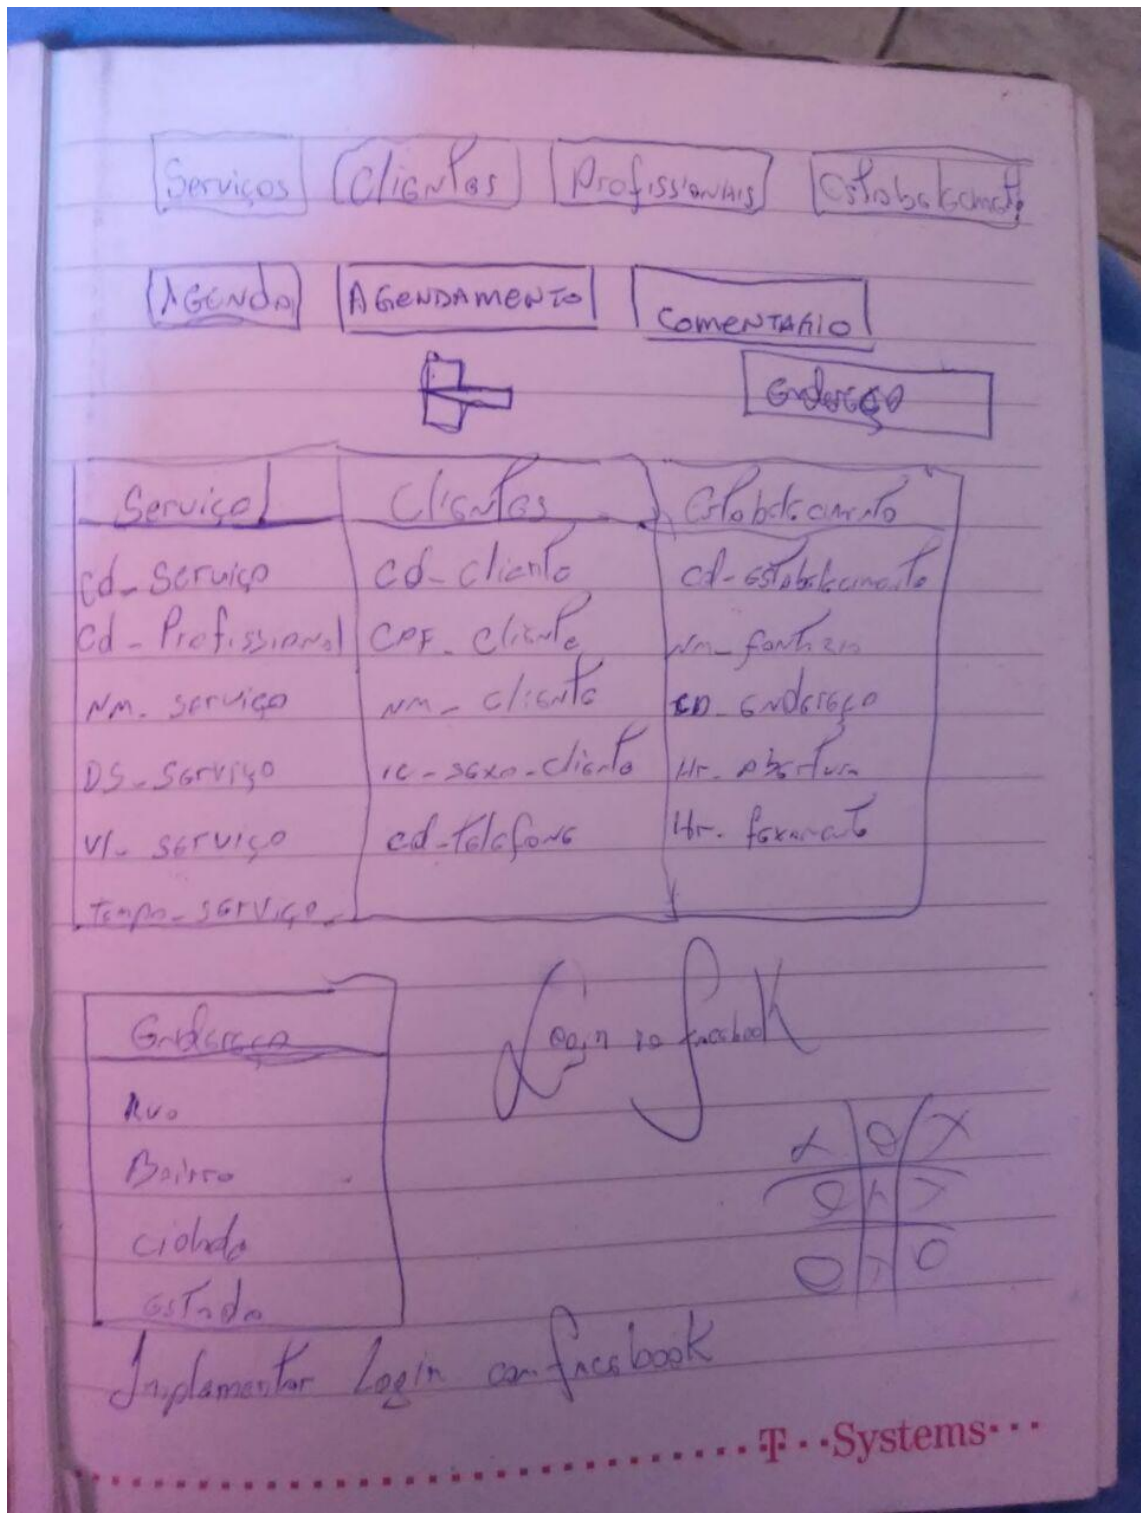 Serviços Clientes Profissionais Estabelecimento
AGENDA AGENDAMENTO COMENTARIO
Endereço
Serviço Clientes Estabelecimento
cd_serviço cd_cliente cd_estabelecimento
cd_Profissional CPF_cliente Nm_fantasia
NM_serviço NM_cliente CD_endereço
DS_serviço ic_sexo_cliente Hr_abertura
Vl_serviço cd_telefone Hr_fexamento
Tempo_serviço
Endereço
Login facebook
Rua
Bairro
X O X
cidade
O X
estado
O O
Implementar Login com facebook
T··Systems···